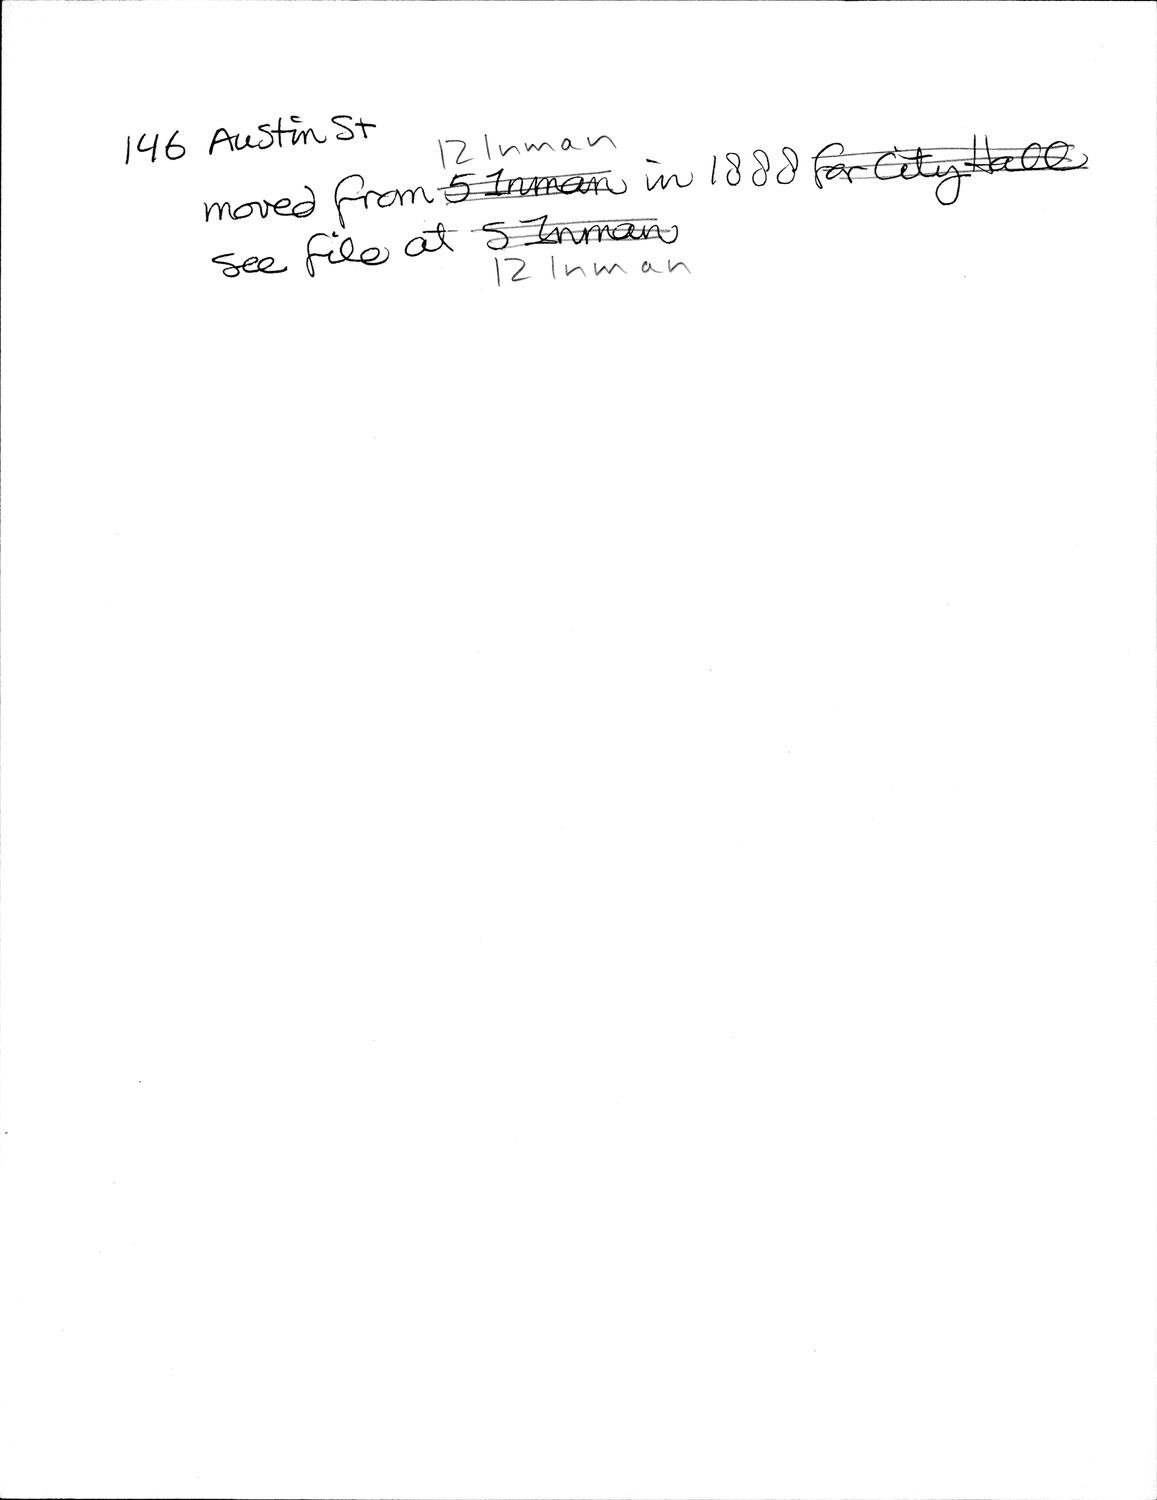 146 Austin St
12 Inman
moved from 5 Inman in 1888 for City Hall
see file at 5 Inman
12 Inman